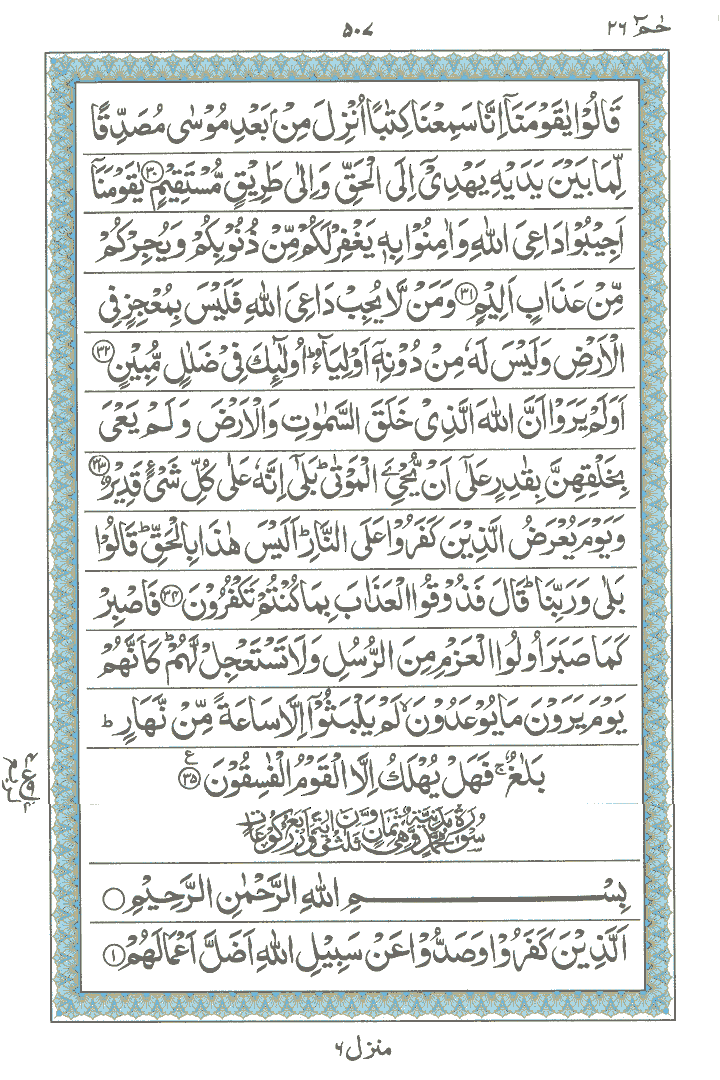 حٰمٓ ۲۶
۵۰۷
قَالُوْا يٰقَوْمَنَاۤ اِنَّا سَمِعْنَا كِتٰبًا اُنْزِلَ مِنْۢ بَعْدِ مُوْسٰى مُصَدِّقًا
لِّمَا بَيْنَ يَدَيْهِ يَهْدِيْۤ اِلَى الْحَقِّ وَاِلٰى طَرِيْقٍ مُّسْتَقِيْمٍ ۳۰ يٰقَوْمَنَاۤ
اَجِيْبُوْا دَاعِيَ اللّٰهِ وَاٰمِنُوْا بِهٖ يَغْفِرْ لَكُمْ مِّنْ ذُنُوْبِكُمْ وَيُجِرْكُمْ
مِّنْ عَذَابٍ اَلِيْمٍ ۳۱ وَمَنْ لَّا يُجِبْ دَاعِيَ اللّٰهِ فَلَيْسَ بِمُعْجِزٍ فِي
الْاَرْضِ وَلَيْسَ لَهٗ مِنْ دُوْنِهٖۤ اَوْلِيَآءُ ؕ اُولٰٓئِكَ فِيْ ضَلٰلٍ مُّبِيْنٍ ۳۲
اَوَلَمْ يَرَوْا اَنَّ اللّٰهَ الَّذِيْ خَلَقَ السَّمٰوٰتِ وَالْاَرْضَ وَلَمْ يَعْيَ
بِخَلْقِهِنَّ بِقٰدِرٍ عَلٰۤى اَنْ يُّحْيِۦَ الْمَوْتٰى ؕ بَلٰۤى اِنَّهٗ عَلٰى كُلِّ شَيْءٍ قَدِيْرٌ ۳۳
وَيَوْمَ يُعْرَضُ الَّذِيْنَ كَفَرُوْا عَلَى النَّارِ ؕ اَلَيْسَ هٰذَا بِالْحَقِّ ؕ قَالُوْا
بَلٰى وَرَبِّنَا ؕ قَالَ فَذُوْقُوا الْعَذَابَ بِمَا كُنْتُمْ تَكْفُرُوْنَ ۳۴ فَاصْبِرْ
كَمَا صَبَرَ اُولُوا الْعَزْمِ مِنَ الرُّسُلِ وَلَا تَسْتَعْجِلْ لَّهُمْ ؕ كَاَنَّهُمْ
يَوْمَ يَرَوْنَ مَا يُوْعَدُوْنَ ۙ لَمْ يَلْبَثُوْۤا اِلَّا سَاعَةً مِّنْ نَّهَارٍ ؕ
بَلٰغٌ ۚ فَهَلْ يُهْلَكُ اِلَّا الْقَوْمُ الْفٰسِقُوْنَ ۳۵ ع
سُوْرَةُ مُحَمَّدٍ مَّدَنِيَّةٌ وَّهِيَ ثَمَانٍ وَّثَلٰثُوْنَ اٰيَةً وَّاَرْبَعُ رُكُوْعَاتٍ
بِسْمِ اللّٰهِ الرَّحْمٰنِ الرَّحِيْمِ
اَلَّذِيْنَ كَفَرُوْا وَصَدُّوْا عَنْ سَبِيْلِ اللّٰهِ اَضَلَّ اَعْمَالَهُمْ ۱
منزل ۶